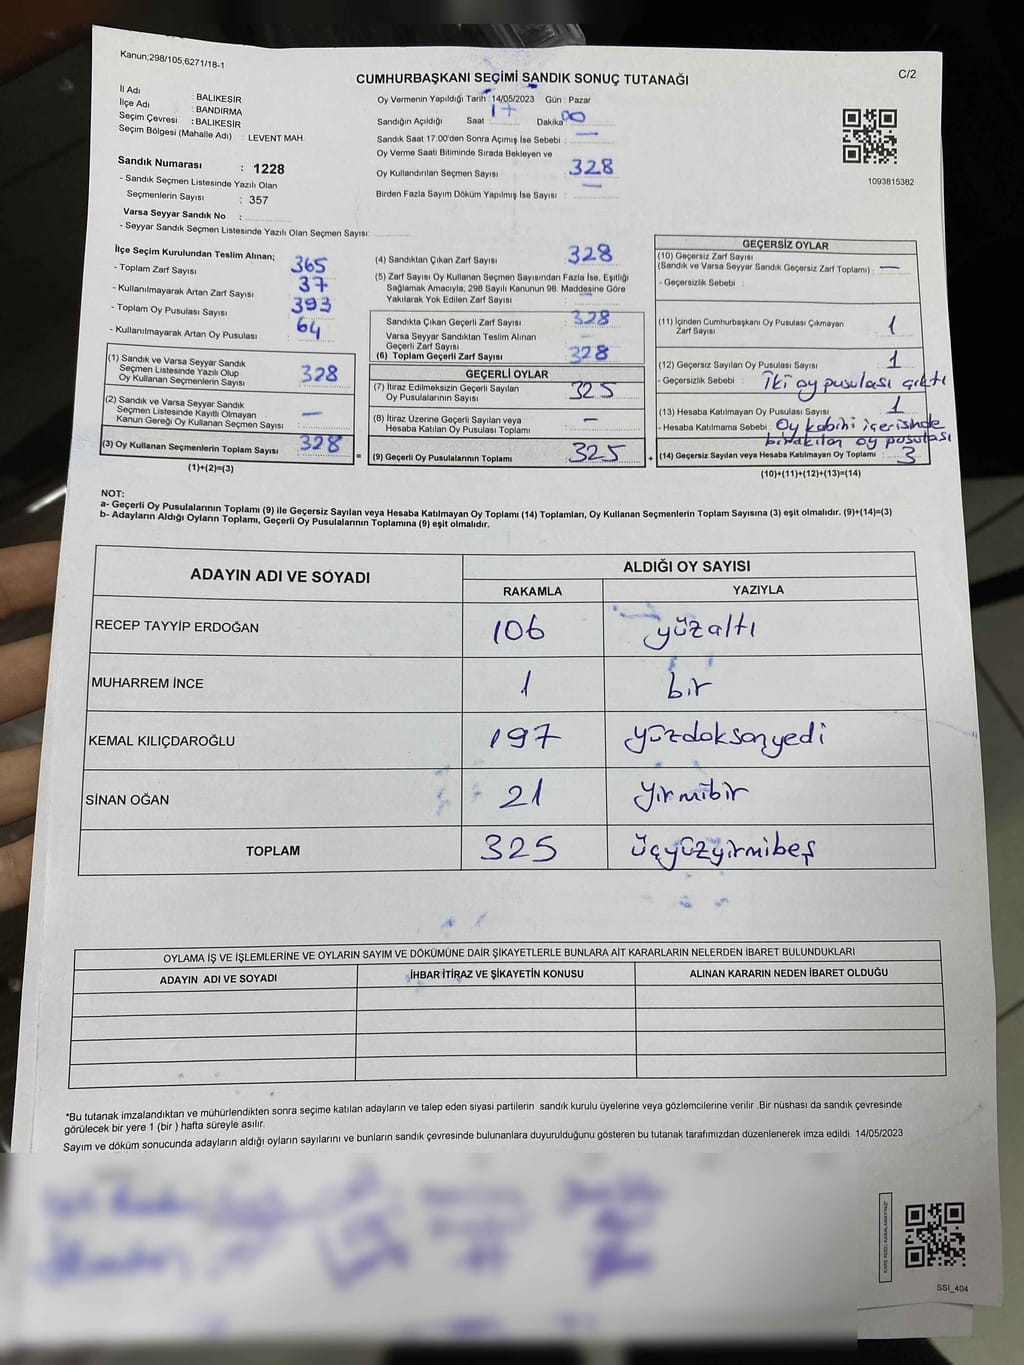 Kanun;298/105,6271/18-1
C/2
CUMHURBAŞKANI SEÇİMİ SANDIK SONUÇ TUTANAĞI
İl Adı : BALIKESİR
İlçe Adı : BANDIRMA
Seçim Çevresi : BALIKESİR
Seçim Bölgesi (Mahalle Adı) : LEVENT MAH.
Oy Vermenin Yapıldığı Tarih : 14/05/2023 Gün : Pazar
Sandığın Açıldığı Saat 17 Dakika 00
Sandık Saat 17:00'den Sonra Açımış İse Sebebi : —
Oy Verme Saati Bitiminde Sırada Bekleyen ve
Oy Kullandırılan Seçmen Sayısı 328
Birden Fazla Sayım Döküm Yapılmış İse Sayısı : —
1093815382
Sandık Numarası : 1228
- Sandık Seçmen Listesinde Yazılı Olan
Seçmenlerin Sayısı : 357
Varsa Seyyar Sandık No :
- Seyyar Sandık Seçmen Listesinde Yazılı Olan Seçmen Sayısı:
İlçe Seçim Kurulundan Teslim Alınan;
- Toplam Zarf Sayısı : 365
- Kullanılmayarak Artan Zarf Sayısı : 37
- Toplam Oy Pusulası Sayısı : 393
- Kullanılmayarak Artan Oy Pusulası : 64
(1) Sandık ve Varsa Seyyar Sandık
Seçmen Listesinde Yazılı Olup
Oy Kullanan Seçmenlerin Sayısı : 328
(2) Sandık ve Varsa Seyyar Sandık
Seçmen Listesinde Kayıtlı Olmayan
Kanun Gereği Oy Kullanan Seçmen Sayısı : —
(3) Oy Kullanan Seçmenlerin Toplam Sayısı : 328
(1)+(2)=(3)
=
(4) Sandıktan Çıkan Zarf Sayısı : 328
(5) Zarf Sayısı Oy Kullanan Seçmen Sayısından Fazla İse, Eşitliği
Sağlamak Amacıyla, 298 Sayılı Kanunun 98. Maddesine Göre
Yakılarak Yok Edilen Zarf Sayısı : —
Sandıkta Çıkan Geçerli Zarf Sayısı : 328
Varsa Seyyar Sandıktan Teslim Alınan
Geçerli Zarf Sayısı : —
(6) Toplam Geçerli Zarf Sayısı : 328
GEÇERLİ OYLAR
(7) İtiraz Edilmeksizin Geçerli Sayılan
Oy Pusulalarının Sayısı : 325
(8) İtiraz Üzerine Geçerli Sayılan veya
Hesaba Katılan Oy Pusulası Toplamı : —
(9) Geçerli Oy Pusulalarının Toplamı : 325
+
GEÇERSİZ OYLAR
(10) Geçersiz Zarf Sayısı
(Sandık ve Varsa Seyyar Sandık Geçersiz Zarf Toplamı) : —
- Geçersizlik Sebebi :
(11) İçinden Cumhurbaşkanı Oy Pusulası Çıkmayan
Zarf Sayısı : 1
(12) Geçersiz Sayılan Oy Pusulası Sayısı : 1
- Geçersizlik Sebebi : İki oy pusulası çıktı
(13) Hesaba Katılmayan Oy Pusulası Sayısı : 1
- Hesaba Katılmama Sebebi : Oy kabini içerisinde
bırakılan oy pusulası
(14) Geçersiz Sayılan veya Hesaba Katılmayan Oy Toplamı : 3
(10)+(11)+(12)+(13)=(14)
NOT:
a- Geçerli Oy Pusulalarının Toplamı (9) ile Geçersiz Sayılan veya Hesaba Katılmayan Oy Toplamı (14) Toplamları, Oy Kullanan Seçmenlerin Toplam Sayısına (3) eşit olmalıdır. (9)+(14)=(3)
b- Adayların Aldığı Oyların Toplamı, Geçerli Oy Pusulalarının Toplamına (9) eşit olmalıdır.
ADAYIN ADI VE SOYADI ALDIĞI OY SAYISI
RAKAMLA YAZIYLA
RECEP TAYYİP ERDOĞAN 106 yüzaltı
MUHARREM İNCE 1 bir
KEMAL KILIÇDAROĞLU 197 yüzdoksanyedi
SİNAN OĞAN 21 yirmibir
TOPLAM 325 üçyüzyirmibeş
OYLAMA İŞ VE İŞLEMLERİNE VE OYLARIN SAYIM VE DÖKÜMÜNE DAİR ŞİKAYETLERLE BUNLARA AİT KARARLARIN NELERDEN İBARET BULUNDUKLARI
ADAYIN ADI VE SOYADI İHBAR İTİRAZ VE ŞİKAYETİN KONUSU ALINAN KARARIN NEDEN İBARET OLDUĞU
*Bu tutanak imzalandıktan ve mühürlendikten sonra seçime katılan adayların ve talep eden siyasi partilerin sandık kurulu üyelerine veya gözlemcilerine verilir .Bir nüshası da sandık çevresinde
görülecek bir yere 1 (bir ) hafta süreyle asılır.
Sayım ve döküm sonucunda adayların aldığı oyların sayılarını ve bunların sandık çevresinde bulunanlara duyurulduğunu gösteren bu tutanak tarafımızdan düzenlenerek imza edildi. 14/05/2023
SSI_404